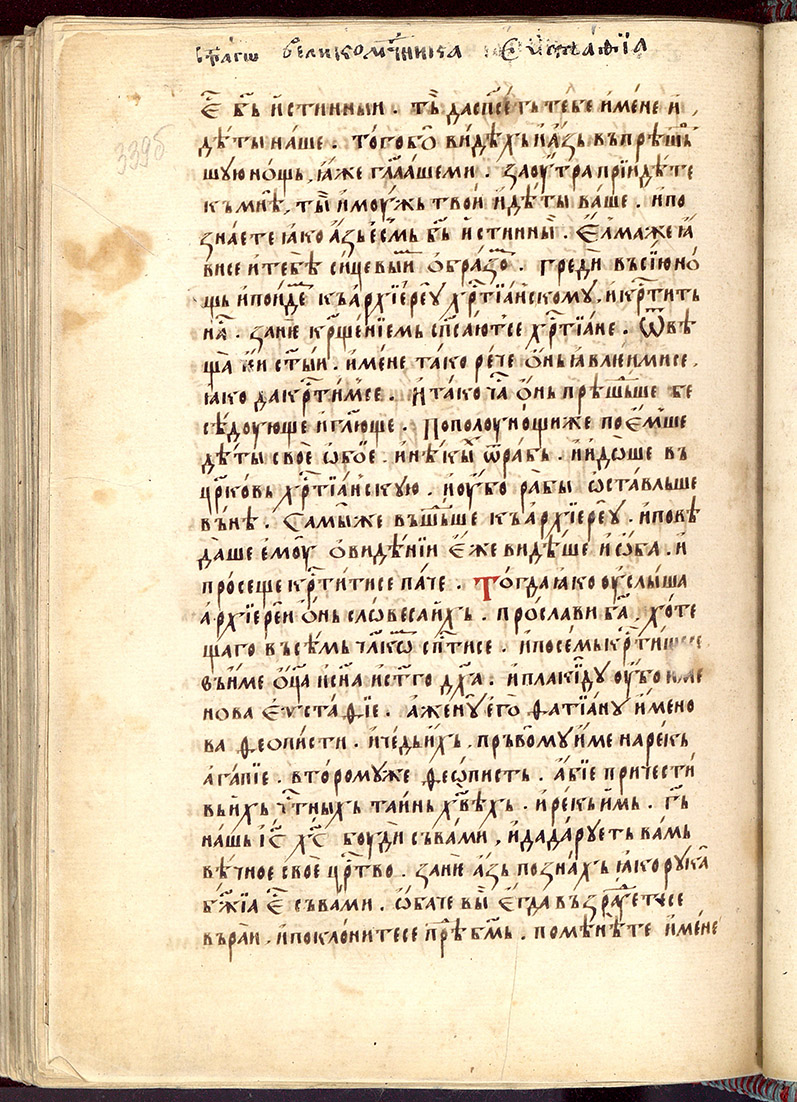 ст҃аго великомч҃ника Еѵстафїа
339б
Е҃ бь҃ истинныи . ть да сп҃сеть тебе и мене и
дѣты наше . того бо видѣхь и азь вь прѣшьⷣ
шую нощь , ꙗже гл҃аше ми . заоутра прїидѣте
кь мнѣ , ты и моужь твои и дѣты ваше . и по
знаете ꙗко азь есмь бь҃ истинныⷨ . Елма же ꙗ
ви се и тебѣ сицевыⷨ образоⷨ . греди вь сїю но
щь и поидеⷨ кь архїерею хрⷭ҇тїанскому . и крⷭ҇тить
наⷭ . зан҃е кр҃щенїемь сп҃саютсе хрⷭ҇тїане . Ѿвѣ
ща к неи ст҃ыи . и мене тако рече онь ꙗвлеи ми се ,
ꙗко да крⷭ҇тимсе . И тако ꙗⷤ онь прѣшьⷣше бе
сѣдоующе и гл҃юще . Пополоунощи же поемше
дѣты свое обое . и нѣкыⷨ ѿ рабь . и идоше вь
цр҃ковь хрⷭ҇тїанскую . и оубо рабы ѡставльше
вьнѣ . Самы же вьшьⷣше кь архїерею . и повѣ
даше емоу о видѣнїи еже видѣше и ѡба . и
просеще крⷭ҇титисе паче . Тогда ꙗко оуслыша
архїереи онь словеса ихь . прослави ба҃ , хоте
щаго всѣмь чл҃комь сп҃стисе . и по семь крⷭ҇ти
вь име ѡц҃а и сн҃а и ст҃го дх҃а . и плакиду оубо име
нова Еѵстафїе . а жену его фатїану имено
ва феописти . и чедь ихь , прьвому име нарекь
агапїе . второму же феѡписть . абїе причести
вь ихь чтⷭ҇ныхь таинь хв҃ѣхь . и рекь имь . гь҃
нашь іс҃ хс҃ боуди сь вами , и да даруеть вамь
вѣчное свое црⷭ҇тво . зан҃е азь познахь ꙗко рука
бж҃їа ес҃ сь вами . ѡбаче вы егда вьзрⷣауетесе
вь раи . и поклонитесе прѣⷣ бм҃ь . поменѣте и мене